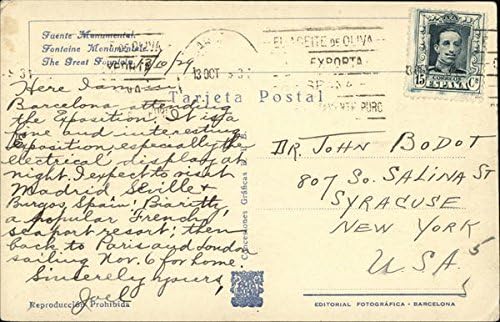 Fuente Monumental.
Fontaine Monumentale.
The Great Fountain.
13/10/29
13 OCT
EL ACEITE DE OLIVA
EXPORTA
PURO
15 Cs
ESPAÑA
Tarjeta Postal
Here I am in
Barcelona attending
the Eposition. It is a
fine and interesting
exposition, especially the
electrical display at
night. I expect to visit
Madrid, Seville &
Burgos, Spain; Biaritz,
a popular French
seaport resort; then
back to Paris and London
sailing Nov. 6 for home.
Sincerely yours,
Joel
DR. JOHN BODOT
807 SO. SALINA ST
SYRACUSE
NEW YORK
U.S.A.
Concesiones Gráficas
Reproducción Prohibida
EDITORIAL FOTOGRÁFICA - BARCELONA